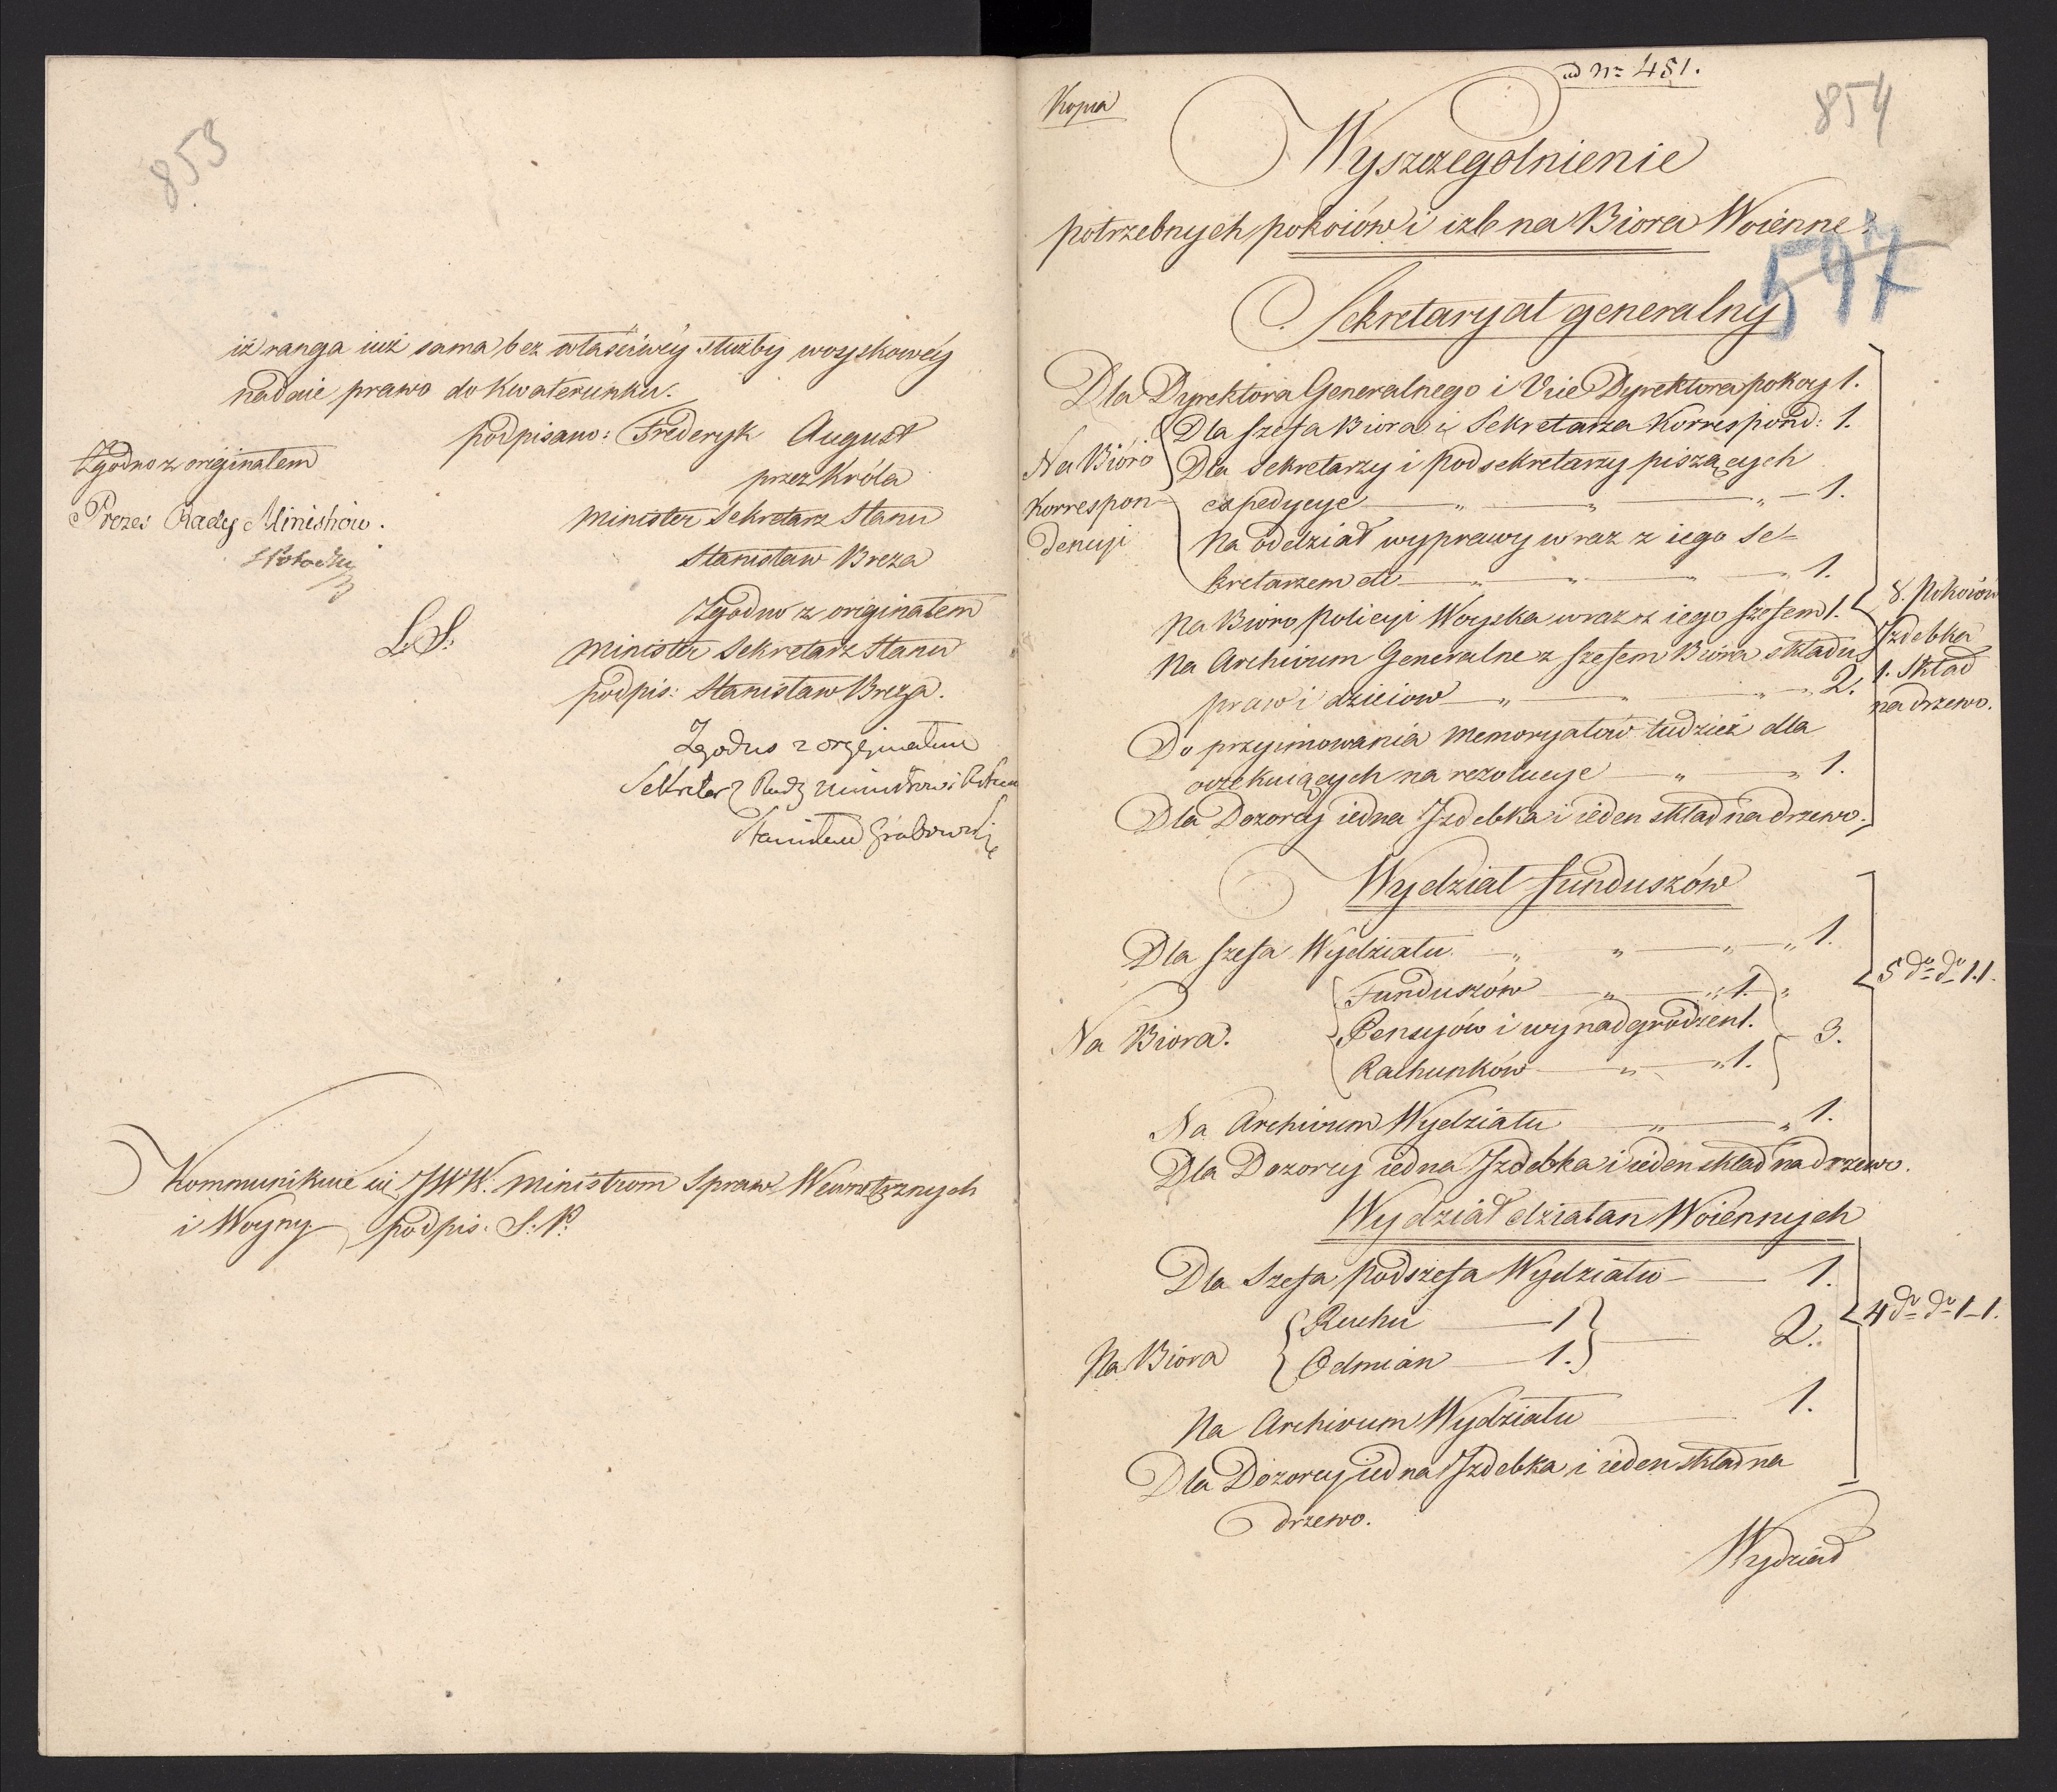 853
iż ranga iuż sama bez właściwéy służby woyskowéy
nadaie prawo do Kwaterunku.
podpisano: Frederyk August
przez Króla
Minister Sekretarz Stanu
Stanisław Breza
Zgodno z originałem
Minister Sekretarz Stanu
podpis: Stanisław Breza.
Zgodno z originałem
Prezes Rady Ministrów.
L.S.
Zgodno z orygjnałem
Sekretarz Rady Ministrów i
Stanisław Grabowski
Kommunikuie się JWW. Ministrom Spraw Wewnętrznych
i Woyny podpis. S. P.
ad Nr 451.
Kopia
854
Wyszczegolnienie
potrzebnych pokoiów i izb na Biora Woienne.
597
Sekretaryat generalny
Dla Dyrektora Generalnego i Vice Dyrektora pokoy 1.
Na Bióro Korrespondencyi
Dla szefa Biora i Sekretarza Korrespond: 1.
Dla Sekretarzy i Podsekretarzy piszących
expedycye — „ — „ — „ — 1.
Na oddział wyprawy wraz z iego Se-
kretarzem etc — „ — „ — „ — „ 1.
Na Bióro Policyi Woyska wraz z iego szefem 1.
Na Archivum Generalne z szefem Bióra składu
praw i dzieiow — „ — „ — „ — „ 2.
Do przyimowania Memoryałów tudzież dla
oczekuiących na rezolucye — „ — „ 1.
Dla Dozorcy iedna Jzdebka i ieden skład na drzewo.
8. Pokoiów
Jzdebka
1. Skład
na drzewo.
Wydział funduszów
Dla szefa Wydziału — „ — „ — „ — „ 1.
Na Biora.
Funduszów — „ — „ 1.
Pensyów i wynadgrodzen 1.
Rachunków — „ — „ 1.
3.
Na Archivum Wydziału — „ — „ 1.
Dla Dozorcy iedna Jzdebka i ieden skład na drzewo.
5 do do 1.1.
Wydział działan Woiennych
Dla Szefa Podszefa Wydziału — 1.
Na Biora
Ruchu — 1
Odmian — 1.
2.
Na Archivum Wydziału 1.
Dla Dozorcy iedna Jzdebka i ieden skład na
drzewo.
4 do do 1–1.
Wydział